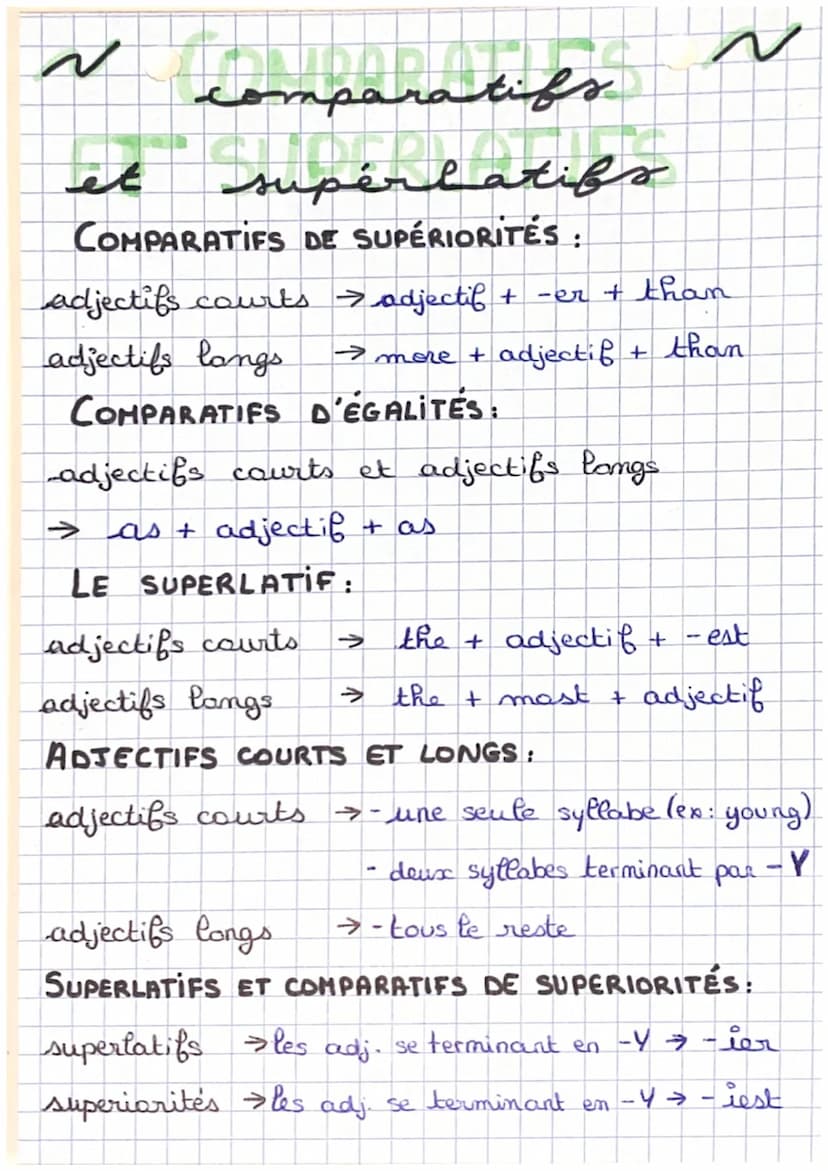 COMPARATIFS
comparatifs
ET SUPERLATIFS
et supérlatifs
COMPARATIFS DE SUPÉRIORITÉS :
adjectifs courts → adjectif + -er + than
adjectifs longs → more + adjectif + than
COMPARATIFS D'ÉGALITÉS :
adjectifs courts et adjectifs longs
→ as + adjectif + as
LE SUPERLATIF :
adjectifs courts → the + adjectif + -est
adjectifs longs → the + most + adjectif
ADJECTIFS COURTS ET LONGS :
adjectifs courts → - une seule syllabe (ex: young)
- deux syllabes terminant par -Y
adjectifs longs → - tous le reste
SUPERLATIFS ET COMPARATIFS DE SUPERIORITÉS :
superlatifs → les adj. se terminant en -Y → -ier
superiorités → les adj. se terminant en -Y → -iest